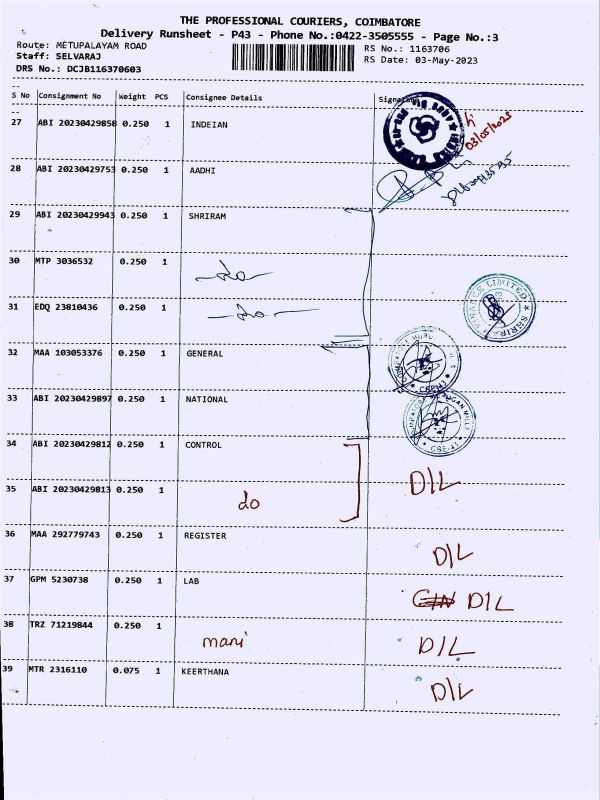 THE PROFESSIONAL COURIERS, COIMBATORE
Delivery Runsheet - P43 - Phone No.:0422-3505555 - Page No.:3
Route: METUPALAYAM ROAD RS No.: 1163706
Staff: SELVARAJ RS Date: 03-May-2023
DRS No.: DCJB116370603
S No Consignment No Weight PCS Consignee Details Signature
27 ABI 20230429858 0.250 1 INDEIAN
03/05/2023
28 ABI 20230429753 0.250 1 AADHI
29 ABI 20230429943 0.250 1 SHRIRAM
30 MTP 3036532 0.250 1 -do-
31 EDQ 23810436 0.250 1 -do-
32 MAA 103053376 0.250 1 GENERAL
33 ABI 20230429897 0.250 1 NATIONAL
34 ABI 20230429812 0.250 1 CONTROL
D/L
35 ABI 20230429813 0.250 1 do
36 MAA 292779743 0.250 1 REGISTER D/L
37 GPM 5230738 0.250 1 LAB D/L
38 TRZ 71219844 0.250 1 mani D/L
39 MTR 2316110 0.075 1 KEERTHANA D/L